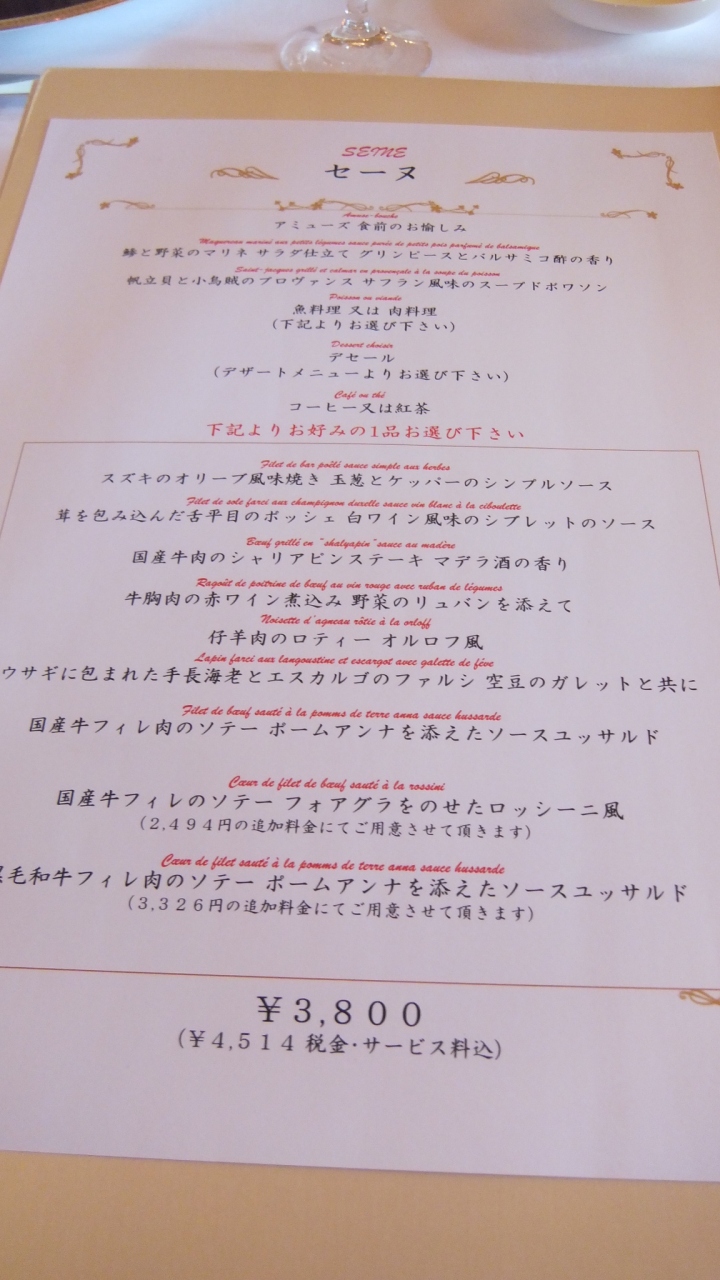 SEINE
セーヌ
Amuse-bouche
アミューズ 食前のお愉しみ
Maquereau mariné aux petits légumes sauce purée de petits pois parfumé de balsamique
鯵と野菜のマリネ サラダ仕立て グリンピースとバルサミコ酢の香り
Saint-jacques grillé et calmar en provençale à la soupe du poisson
帆立貝と小烏賊のプロヴァンス サフラン風味のスープドポワソン
Poisson ou viande
魚料理 又は 肉料理
(下記よりお選び下さい)
Dessert choisir
デセール
(デザートメニューよりお選び下さい)
Café ou thé
コーヒー又は紅茶
下記よりお好みの1品お選び下さい
Filet de bar poêlé sauce simple aux herbes
スズキのオリーブ風味焼き 玉葱とケッパーのシンプルソース
Filet de sole farci aux champignon duxelle sauce vin blanc à la ciboulette
茸を包み込んだ舌平目のポッシェ 白ワイン風味のシブレットのソース
Bœuf grillé en "shalyapin" sauce au madère
国産牛肉のシャリアピンステーキ マデラ酒の香り
Ragoût de poitrine de bœuf au vin rouge avec ruban de légumes
牛胸肉の赤ワイン煮込み 野菜のリュバンを添えて
Noisette d'agneau rôtie à la orloff
仔羊肉のロティー オルロフ風
Lapin farci aux langoustine et escargot avec galette de féve
ウサギに包まれた手長海老とエスカルゴのファルシ 空豆のガレットと共に
Filet de bœuf sauté à la pomms de terre anna sauce hussarde
国産牛フィレ肉のソテー ポームアンナを添えたソースユッサルド
Cœur de filet de bœuf sauté à la rossini
国産牛フィレのソテー フォアグラをのせたロッシーニ風
(2,494円の追加料金にてご用意させて頂きます)
Cœur de filet sauté à la pomms de terre anna sauce hussarde
黒毛和牛フィレ肉のソテー ポームアンナを添えたソースユッサルド
(3,326円の追加料金にてご用意させて頂きます)
¥3,800
(¥4,514 税金・サービス料込)